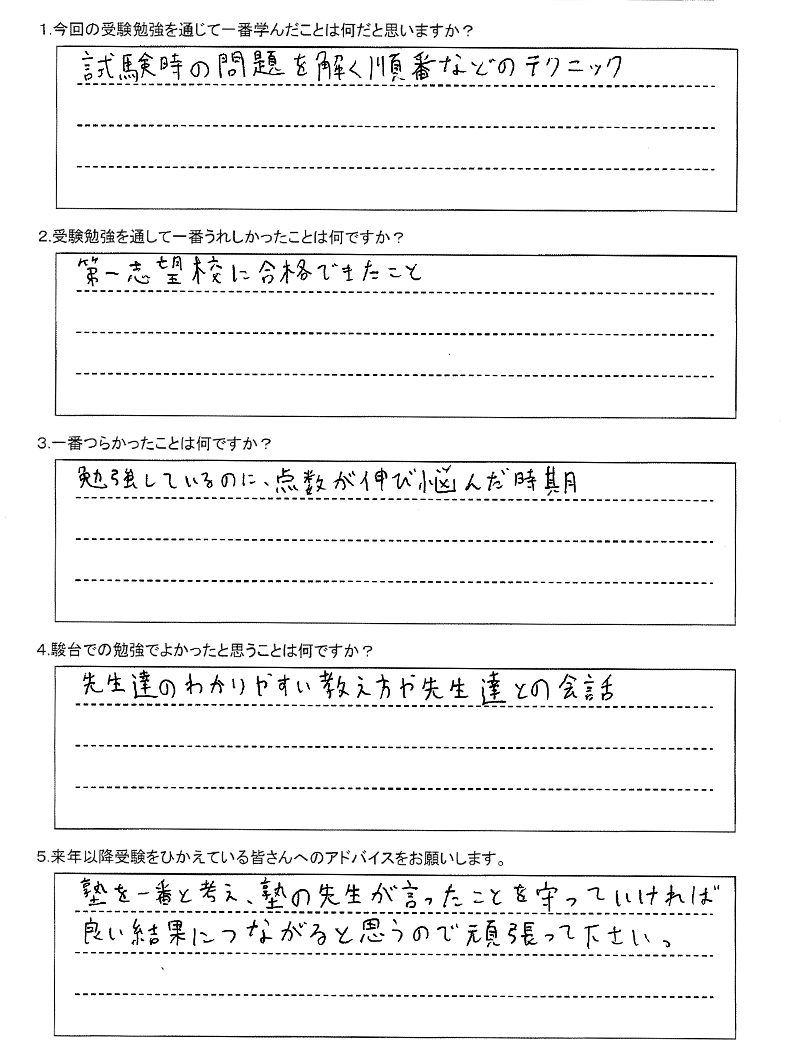 1.今回の受験勉強を通じて一番学んだことは何だと思いますか？
試験時の問題を解く順番などのテクニック
2.受験勉強を通して一番うれしかったことは何ですか？
第一志望校に合格できたこと
3.一番つらかったことは何ですか？
勉強しているのに、点数が伸び悩んだ時期
4.駿台での勉強でよかったと思うことは何ですか？
先生達のわかりやすい教え方や先生達との会話
5.来年以降受験をひかえている皆さんへのアドバイスをお願いします。
塾を一番と考え、塾の先生が言ったことを守っていければ
良い結果につながると思うので頑張って下さい。